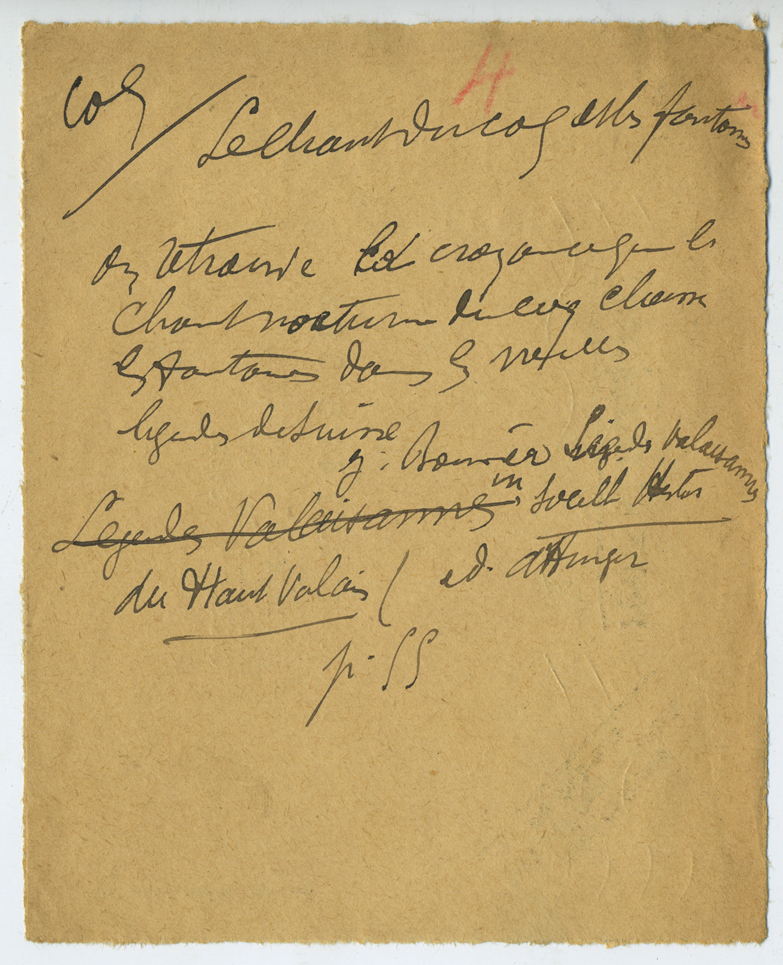 H
Coq / Le Chant du coq et les fantomes
on retrouve la croyance que le
Chant nocturne du coq chasse
les fantomes dans les vieilles
légendes de Suisse
Légendes Valaisannes
Légendes Valaisannes in Société Histor
du Haut Valais / ed. Attinger
p. 55